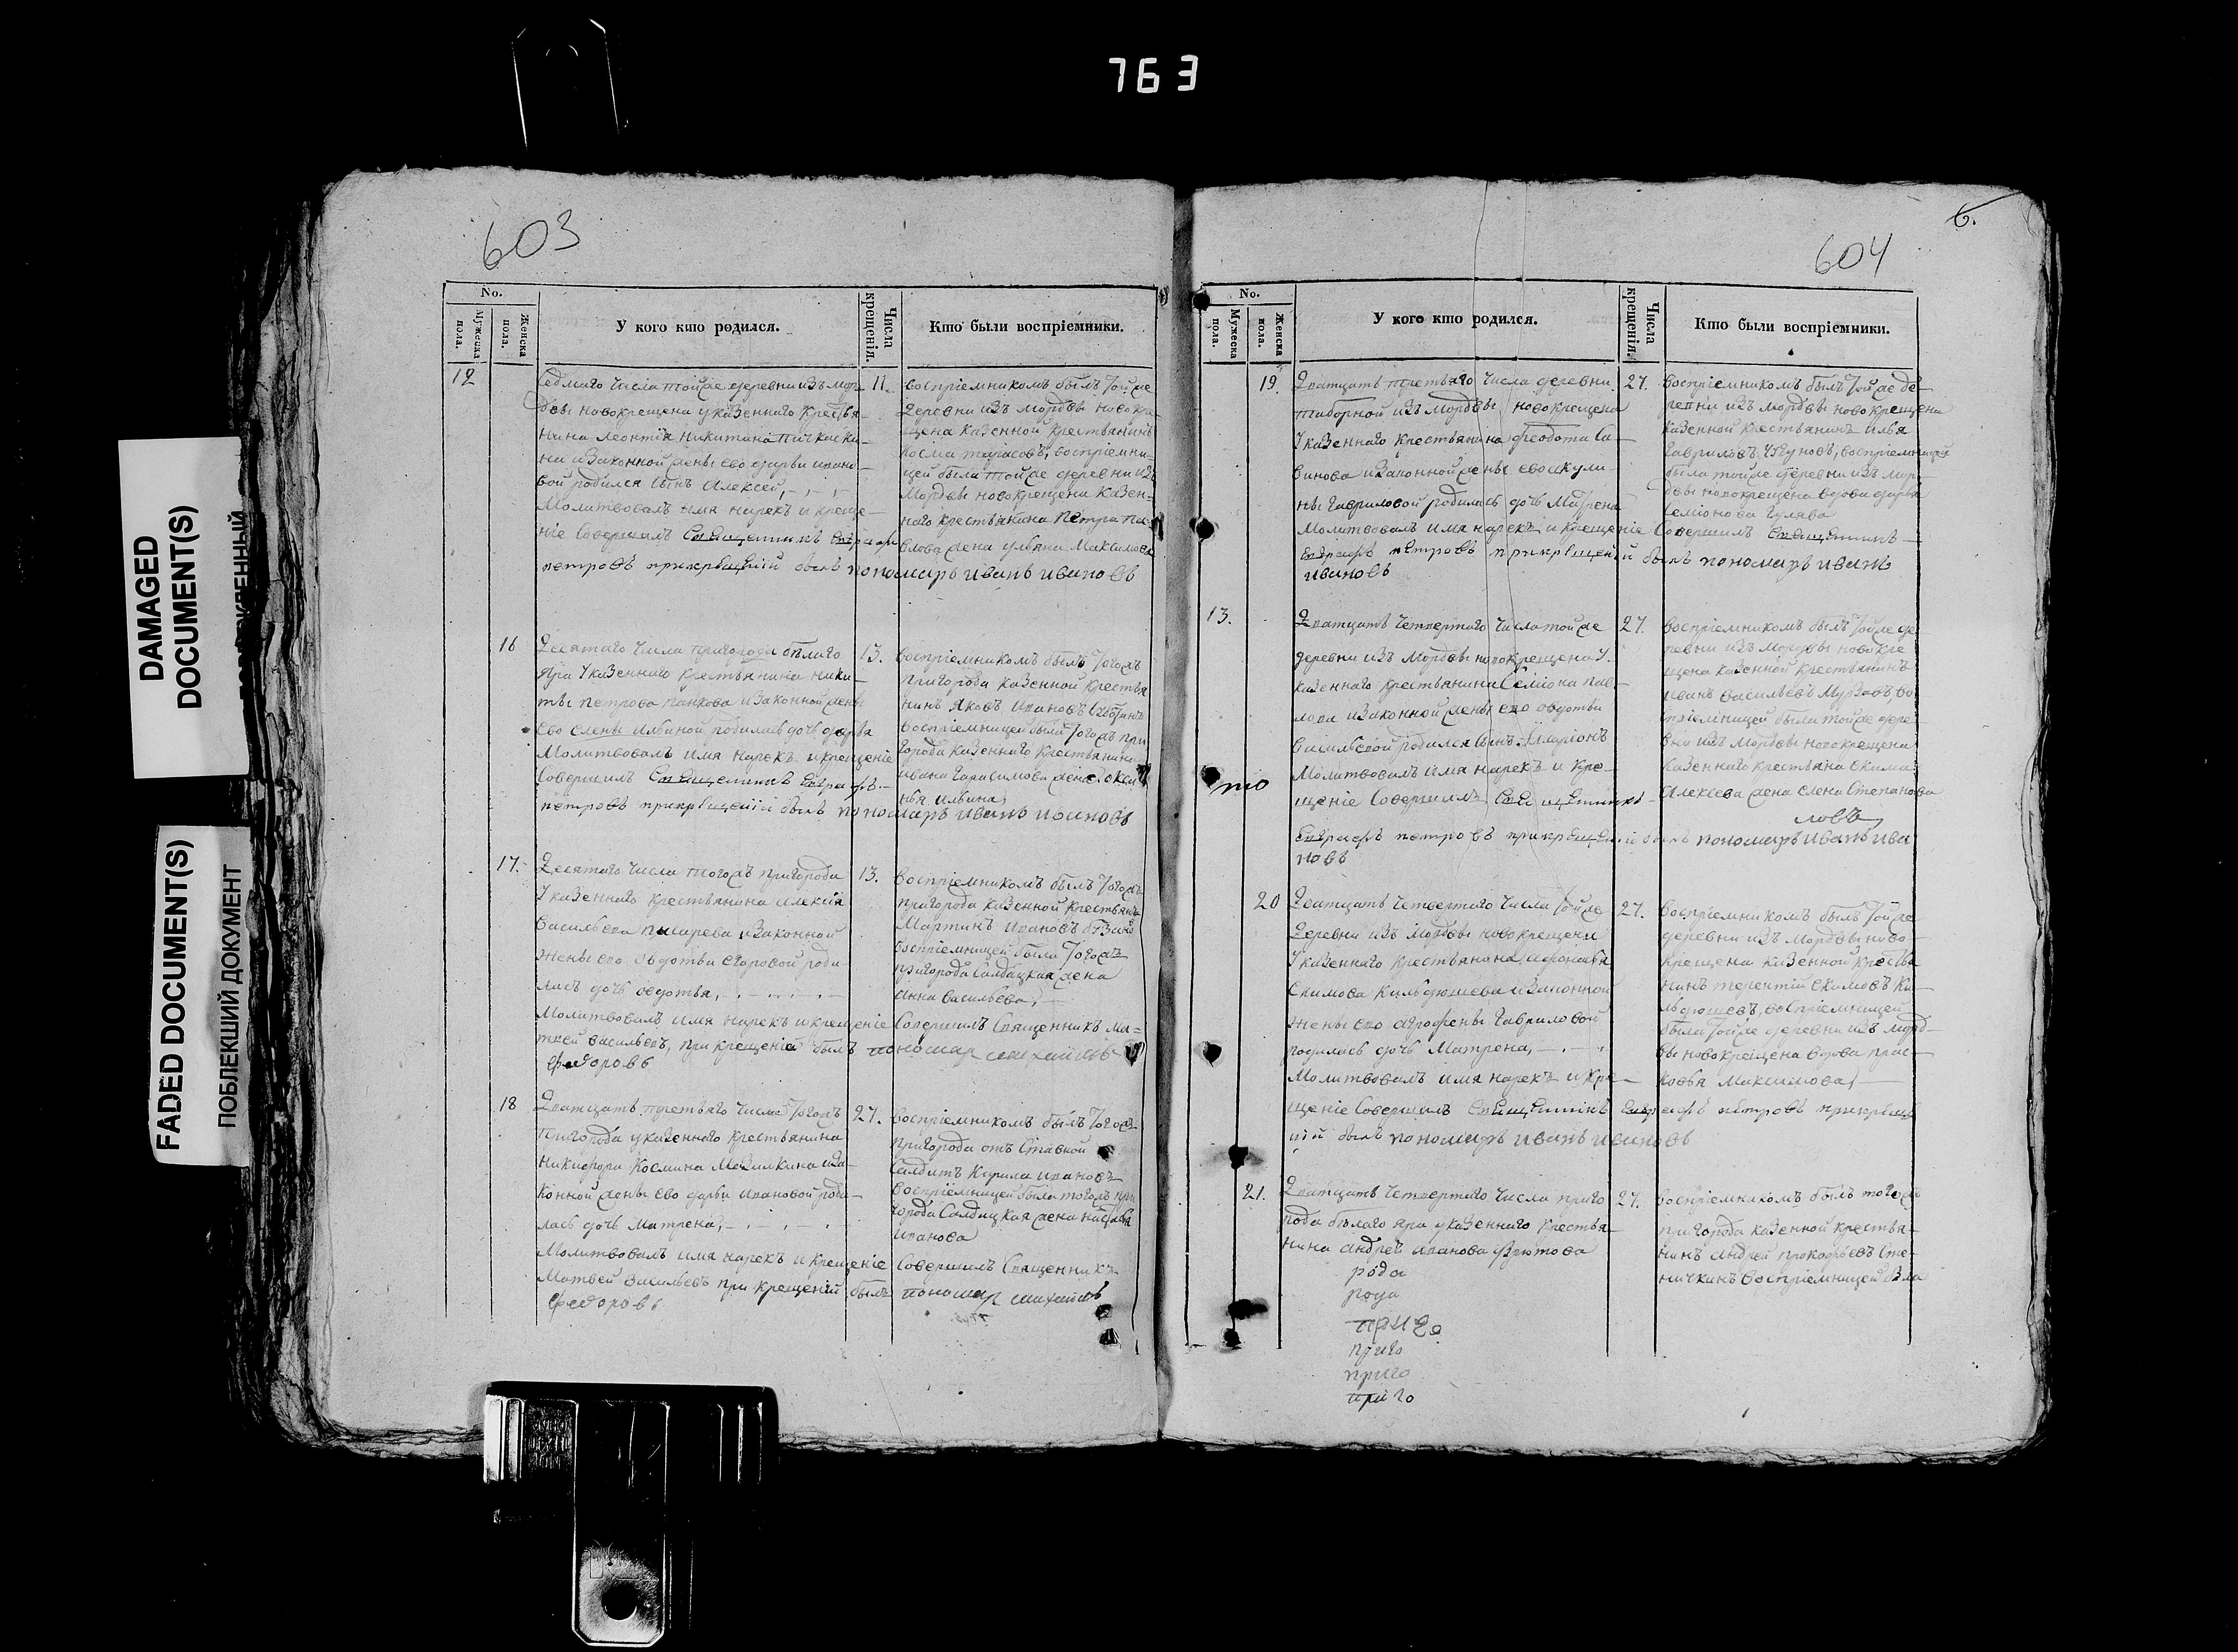 763
DAMAGED
DOCUMENT(S)
FADED DOCUMENT(S)
ПОБЛЕКШИЙ ДОКУМЕНТ
603
No.
Мужеска пола.
Женска пола.
У кого кто родился.
Числа крещенія.
Кто были воспріемники.
12
Седмаго числа тойже деревни изъ мор-
двы новокрещена указеннаго крестья-
нина Леонтія Никитина
на изаконной жены ево дарьи ивано-
вой родился сынъ Алексей,
Молитвовалъ имя нарекъ и креще-
ніе Совершилъ Священникъ Евграфъ
петровъ прикрещеніи былъ пономарь иванъ ивановъ
11.
воспріемникомъ былъ тойже
деревни изъ мордвы новокре
щена казенной крестьянинъ
Косма тарасовъ, воспріемни-
цей была тойже деревни изъ
Мордвы новокрещена казен-
наго крестьянина Петра Па-
влова жена ульяна Максимова
16
Десятаго числа пригорода белаго
Яра Указеннаго крестьянина ники-
ты петрова панкова изаконной жены
ево елены ильиной родилась дочь дарья
Молитвовалъ имя нарекъ и крещеніе
Совершилъ Священникъ Евграфъ
петровъ прикрещеніи былъ пономарь иванъ ивановъ
13.
воспріемникомъ былъ тогожъ
пригорода казенной крестья
нинъ Яковъ ивановъ
воспріемницей была тогожъ при
города казеннаго крестьянина
ивана Гарасимова жена
ильина
17.
Десятаго числа тогожъ пригорода
Указеннаго крестьянина алексія
Васильева писарева изаконной
жены ево Овдотьи егоровой роди-
лась дочь овдотья,
Молитвовалъ имя нарекъ и крещеніе Совершилъ Священникъ Ма-
твей Васильевъ, при крещеніи былъ пономар михайлъ
федоровъ
13.
Воспріемникомъ былъ тогожъ
пригорода казенной крестьян
Мартинъ ивановъ
воспріемницей была тогожъ
пригорода Салдацкая жена
анна васильева,
18
Дватцать третьяго числа тогожъ
Пригорода указеннаго крестьянина
Никифора Космина Мазилкина иза-
конной жены ево дарьи ивановой роди-
лась дочь Матрена,
Молитвовалъ имя нарекъ и крещеніе Совершилъ Священникъ
Матвей Васильевъ при крещеніи былъ пономар михайлъ
федоровъ
27.
воспріемникомъ былъ тогожъ
пригорода отъ Ставной
Салдатъ Кирила ивановъ
воспріемницей была тогожъ при
города Салдацкая жена
иванова
6.
604
No.
Мужеска пола.
Женска пола.
У кого кто родился.
Числа крещенія.
Кто были воспріемники.
19.
Дватцать третьяго числа деревни
таборной изъ Мордвы новокрещена
Указеннаго крестьянина феодота Са-
винова изаконной жены ево акули-
ны Гавриловой родилась дочь Матрена
Молитвовалъ имя нарекъ и крещеніе Совершилъ Священникъ
Евграфъ петровъ прикрещеніи былъ пономарь иванъ
ивановъ
27.
воспріемникомъ былъ тойже де-
ревни изъ мордвы новокрещена
казенной крестьянинъ илья
Гавриловъ воспріемницей
была тойже деревни изъ мор-
двы новокрещена вдова дарья
Семіонова
13.
Дватцать четвертаго числа тойже
деревни изъ мордвы новокрещена У
казеннаго крестьянина Семіона пав-
лова изаконной жены ево овдотьи
васильевой родился сынъ Иларіонъ
Молитвовалъ имя нарекъ и кре-
щеніе Совершилъ Священникъ
Евграфъ петровъ прикрещеніи былъ пономарь иванъ ива
новъ
27.
воспріемникомъ былъ тойже де-
ревни изъ мордвы новокре
щена казенной крестьянинъ
иванъ васильевъ Мурзаевъ, во
спріемницей была тойже дере-
вни изъ Мордвы новокрещена
казеннаго крестьяна екима
Алексеева жена елена Степанова
20
Дватцать четвертаго числа тойже
Деревни изъ Мордвы новокрещена
Указеннаго крестьянина
Екимова Кильдюшева изаконной
жены ево агрофены Гавриловой
родилась дочь Матрена,
Молитвовалъ имя нарекъ и кре-
щеніе Совершилъ Священникъ Евграфъ петровъ прикреще
ніи былъ пономарь иванъ ивановъ
27.
воспріемникомъ былъ тойже
деревни изъ мордвы ново-
крещена казенной крестья
нинъ терентій екимовъ Ки-
льдюшевъ, воспріемницей
была тойже деревни изъ морд-
вы новокрещена вдова прас-
ковья Максимова,
21.
Дватцать четвертаго числа приго
рода белаго яра указеннаго крестья-
нина андрей иванова
27.
воспріемникомъ былъ тогожъ
пригорода казенной крестья-
нинъ андрей прокофьевъ Сте-
ничкинъ воспріемницей была
рода
рода
приго
приго
приго
приго